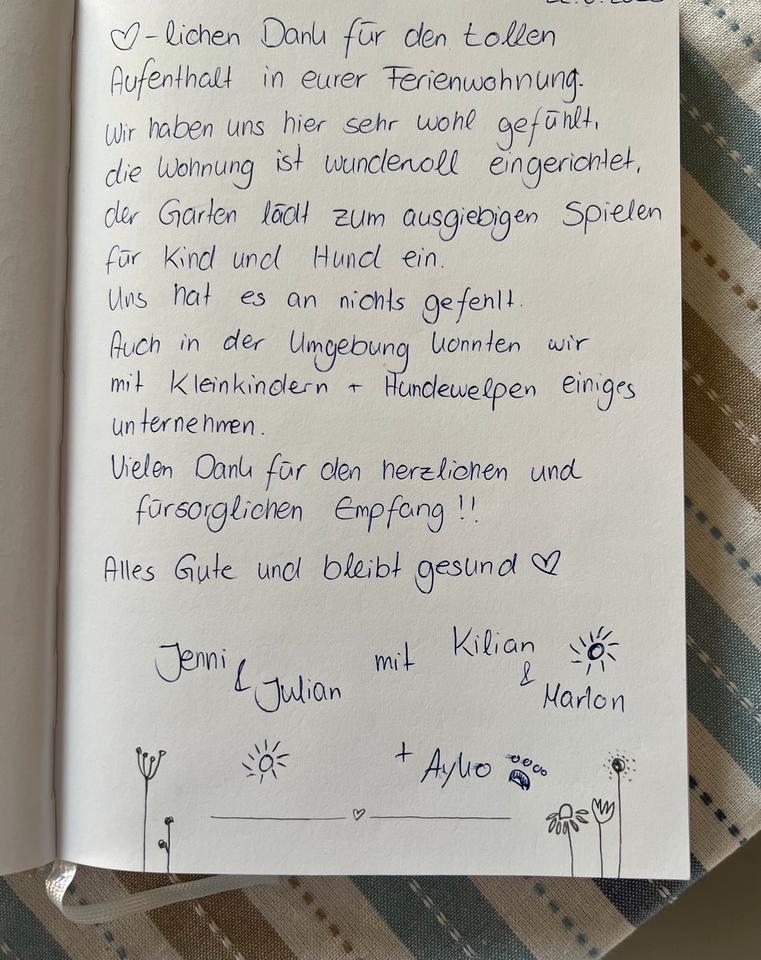 ♡-lichen Dank für den tollen
Aufenthalt in eurer Ferienwohnung.
Wir haben uns hier sehr wohl gefühlt,
die Wohnung ist wundervoll eingerichtet,
der Garten lädt zum ausgiebigen Spielen
für Kind und Hund ein.
Uns hat es an nichts gefehlt.
Auch in der Umgebung konnten wir
mit Kleinkindern + Hundewelpen einiges
unternehmen.
Vielen Dank für den herzlichen und
fürsorglichen Empfang!!
Alles Gute und bleibt gesund ♡
Jenni & Julian mit Kilian & Marlon
+ Ayko